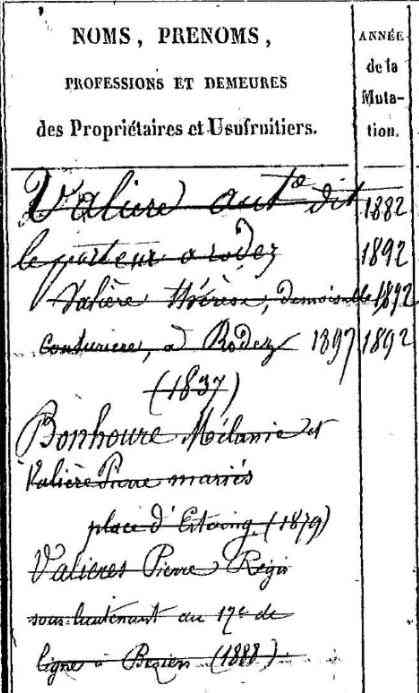 NOMS, PRENOMS, ANNÉE
PROFESSIONS ET DEMEURES de la
des Propriétaires et Usufruitiers. Muta-
tion.
Valiere ant.e dit 1882
le porteur a rodez 1892
Valière Thérèse, demoiselle 1892
couturiere, à Rodez 1897 1892
(1837)
Bonhoure Mélanie et
Valière Pierre mariés
place d'Estaing (1879)
Valieres Pierre Régis
sous-lieutenant au 17e de
ligne à Beziers (1888)